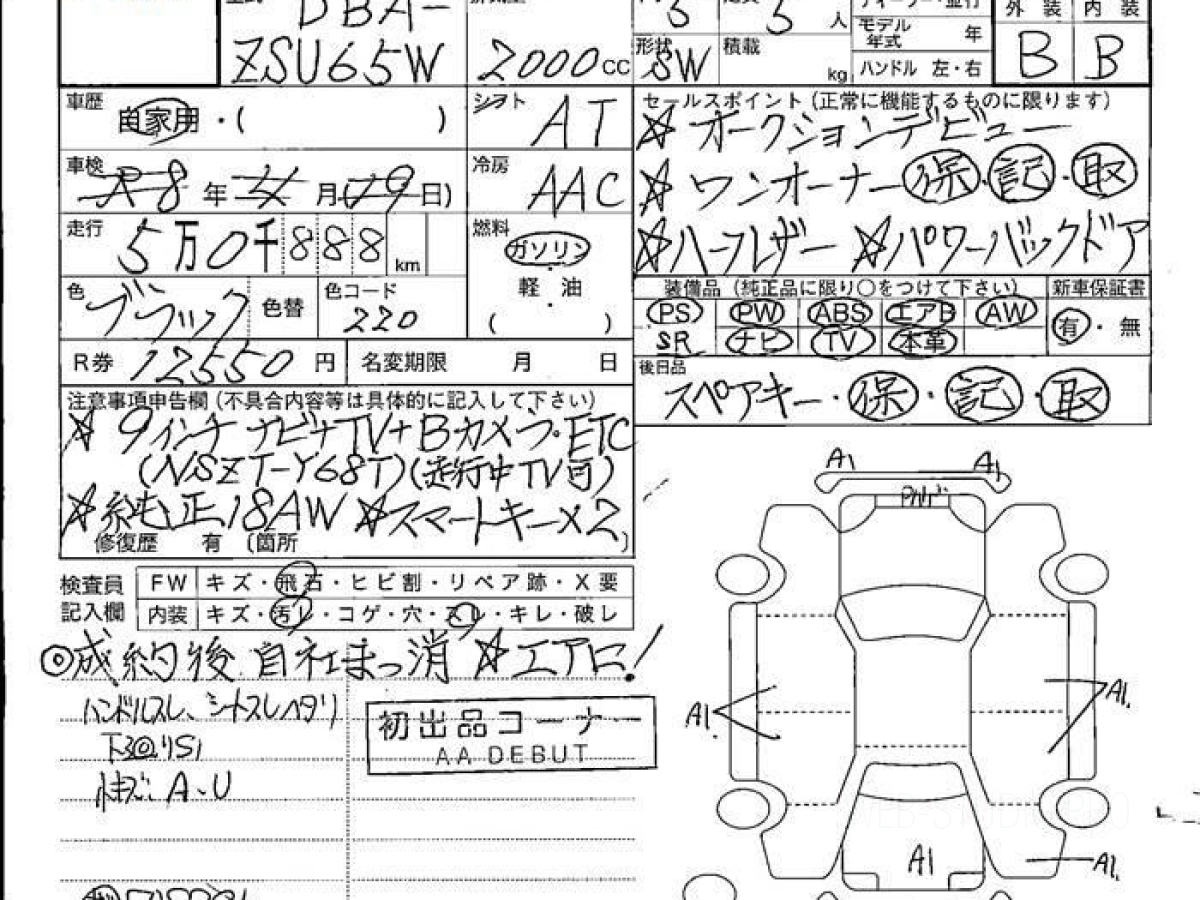 DBA-
ZSU65W
2000cc
5
5人
形状 SW
積載 kg
モデル年式 年
ハンドル 左・右
外装 B
内装 B
車歴 自家用・( )
シフト AT
車検 R8年 月(19日)
冷房 AAC
走行 5万0千888 km
燃料 ガソリン・軽油・( )
色 ブラック
色替
色コード 220
R券 12550円
名変期限 月 日
セールスポイント(正常に機能するものに限ります)
☆オークションデビュー
☆ワンオーナー 保・記・取
☆ハーフレザー ☆パワーバックドア
装備品(純正品に限り○をつけて下さい)
新車保証書
PS PW ABS エアB AW
有・無
SR ナビ TV 本革
後日品
スペアキー・保・記・取
注意事項申告欄(不具合内容等は具体的に記入して下さい)
☆9インチナビ+TV+Bカメラ・ETC
(NSZT-Y68T)(走行中TV可)
☆純正18AW ☆スマートキー×2
修復歴 有 (箇所 )
検査員記入欄
FW キズ・飛石・ヒビ割・リペア跡・X要
内装 キズ・汚レ・コゲ・穴・スレ・キレ・破レ
◎成約後自社まっ消 ☆エアに!
ハンドルスレ、シートスレヘタリ
下回りS1
A・U
初出品コーナー
AA DEBUT
A1 A1
A1. A1.
A1 A1.